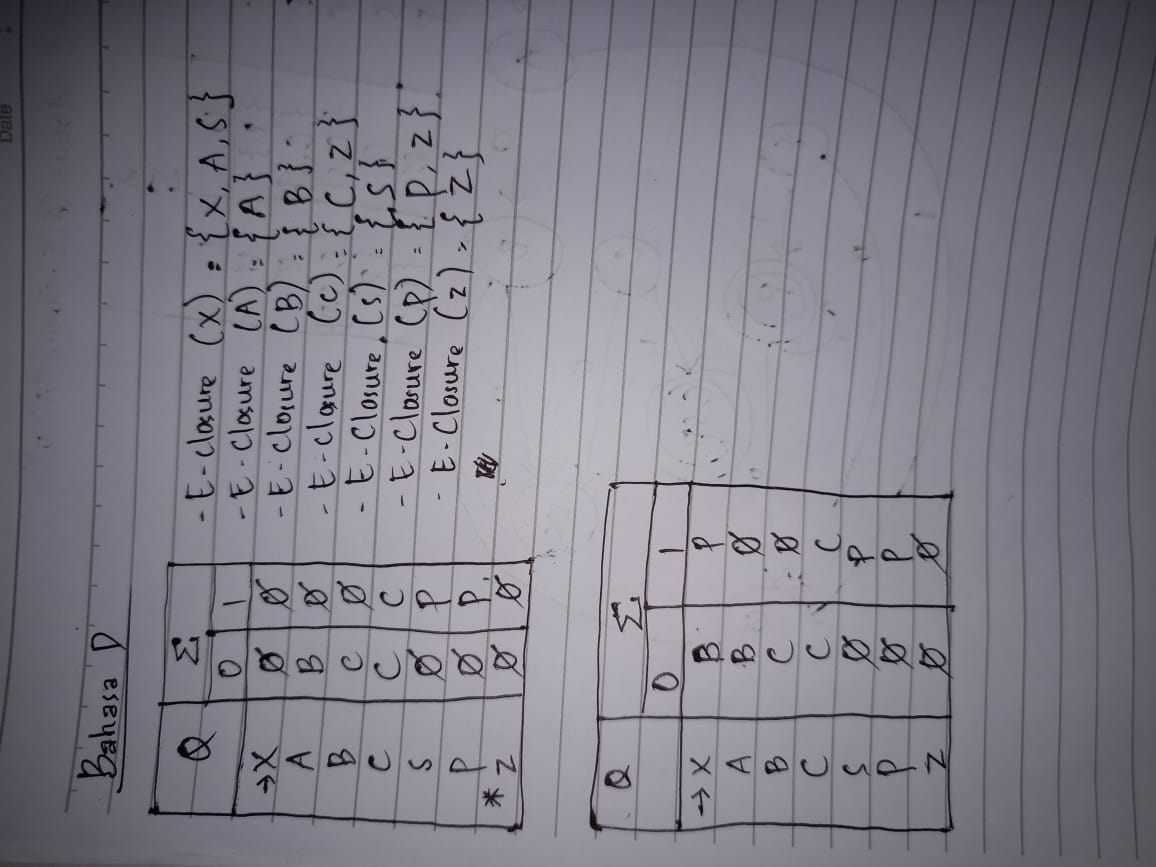 Date
Bahasa D
Q Σ
0 1
→X Ø Ø
A B Ø
B C Ø
C C C
S Ø P
P Ø P
* Z Ø Ø
- E-closure (X) = {X, A, S}
- E-closure (A) = {A}
- E-closure (B) = {B}
- E-closure (C) = {C, Z}
- E-Closure (S) = {S}
- E-Closure (P) = {P, Z}
- E-Closure (Z) = {Z}
Q Σ
0 1
→X B P
A B Ø
B C Ø
C C C
S Ø P
P Ø P
Z Ø Ø